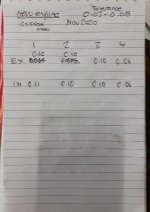 new engine Tolerance
0.03 - 0.08
Nov 2020
1 2 3 4
0.10 0.10
EX 0.10 0.06
IN 0.11 0.10 0.10 0.06